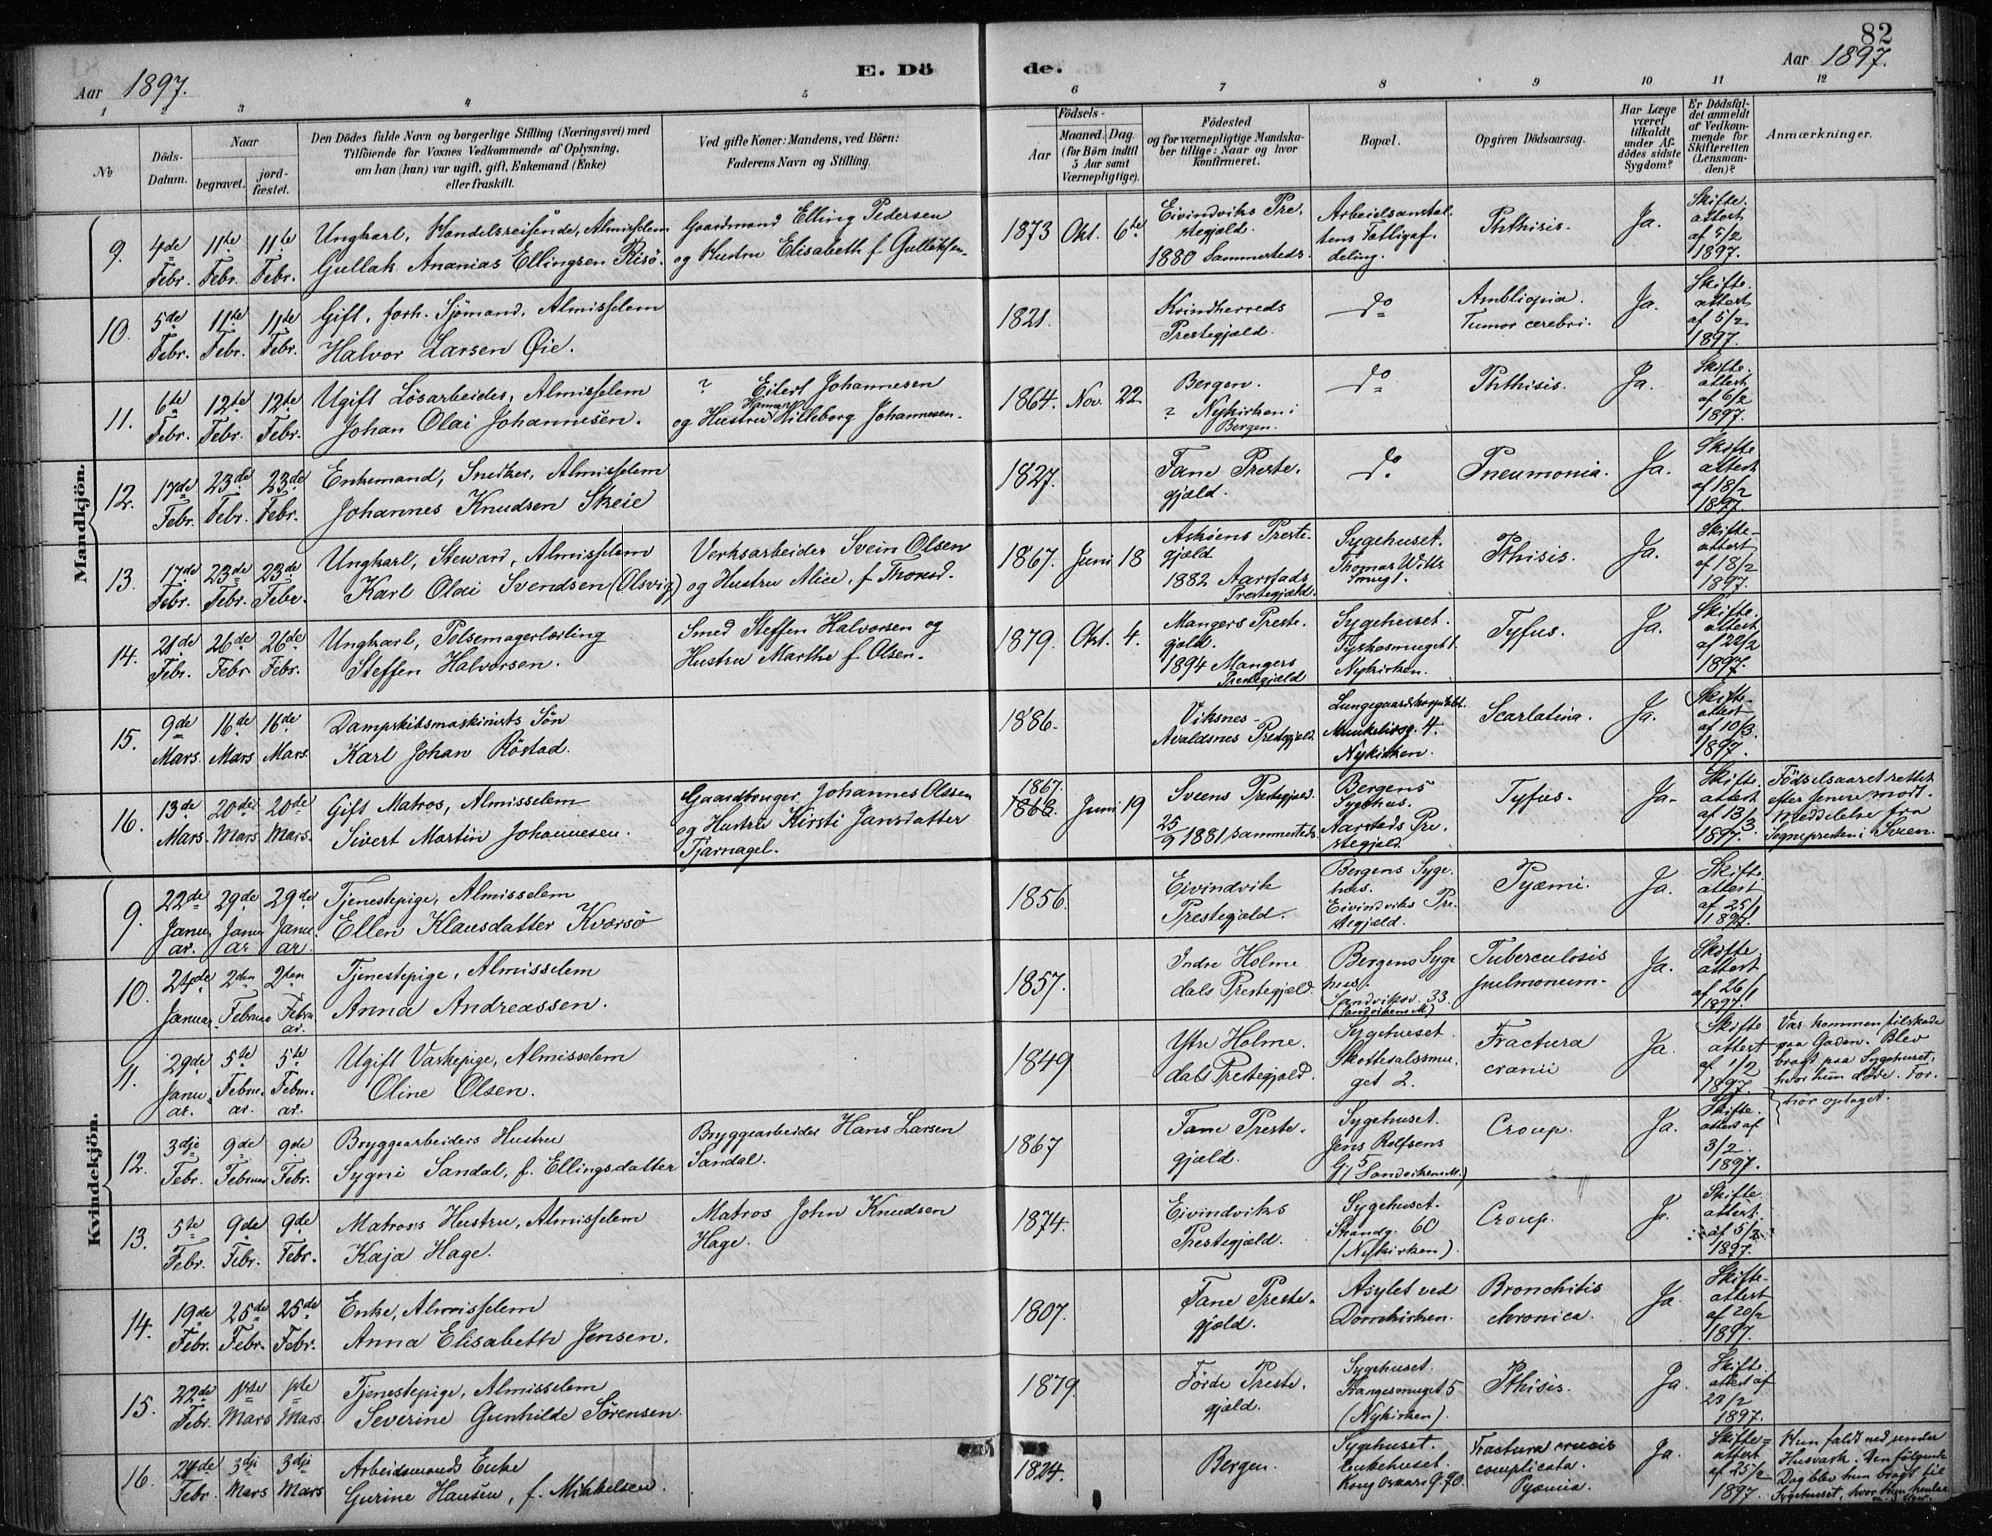 82
Aar 1897.
E. Döde.
Aar 1897.
1 2 3 4 5 6 7 8 9 10 11 12
No
Döds-Datum.
Naar
begravet.
jordfæstet.
Den Dödes fulde Navn og borgerlige Stilling (Næringsvei) med
Tilföiende for Voxnes Vedkommende af Oplysning,
om han (hun) var ugift, gift, Enkemand (Enke)
eller fraskilt.
Ved gifte Koner: Mandens, ved Börn:
Faderens Navn og Stilling.
Födsels-
Aar
Maaned. Dag.
(for Börn indtil
5 Aar samt
Værnepligtige).
Födested
og for værnepligtige Mandskaber
tillige: Naar og hvor
konfirmeret.
Bopæl.
Opgiven Dödsaarsag.
Har Læge
været
tilkaldt
under Afdödes
sidste
Sygdom?
Er Dödsfaldet
anmeldt
af Vedkommende
for
Skifteretten
(Lensmanden)?
Anmærkninger.
Mandkjön.
9. 4de Febr. 11te Febr. 11te Febr.
Ungkarl, Handelsreisende, Almisselem
Gullak Ananias Ellingsen Risö.
Gaardmand Elling Pedersen
og Hustru Elisabeth f. Gullaksen
1873 Okt. 6te
Eivindviks Prestegjæld.
1880 Sammesteds.
Arbeidsanstaltens Fattigafdeling.
Phthisis.
Ja.
Skifteattest af 5/2 1897.
10. 5de Febr. 11te Febr. 11te Febr.
Gift, forh. Sjömand, Almisselem
Halvor Larsen Öie.
1821.
Kvindherreds Prestegjæld.
do
Ambliopia.
Tumor cerebri.
Ja.
Skifteattest af 5/2 1897.
11. 6te Febr. 12te Febr. 12te Febr.
Ugift Lösarbeider, Almisselem
Johan Olai Johannesen.
? Eilert Johannesen
og Hustru Hilleborg Johannesen.
1864. Nov. 22
Bergen.
? Nykirken i Bergen.
do
Phthisis.
Ja.
Skifteattest af 6/2 1897.
12. 17de Febr. 23de Febr. 23de Febr.
Enkemand, Snedker, Almisselem
Johannes Knudsen Skeie
1827.
Fane Prestegjæld.
do
Pneumonia.
Ja.
Skifteattest af 18/2 1897
13. 17de Febr. 23de Febr. 23de Febr.
Ungkarl, Steward, Almisselem
Karl Olai Svendsen (Olsvig)
Verksarbeider Svein Olsen
og Hustru Alice, f. Thorsd.
1867. Juni 18
Askøens Prestegjæld
1882 Aarstads Prestegjæld.
Sygehuset.
Thomas Witts Smug 1.
Pthisis.
Ja.
Skifteattest af 18/2 1897.
14. 21de Febr. 26de Febr. 26de Febr.
Ungkarl, Pølsemagerlærling
Steffen Halvorsen.
Smed Steffen Halvorsen og
Hustru Marthe f. Olsen.
1879. Okt. 4.
Mangers Prestegjæld.
1894 Mangers Prestegjæld
Sygehuset.
Tyskesmuget 1.
Nykirken.
Tyfus.
Ja.
Skifteattest af 22/2 1897.
15. 9de Mars. 16de Mars 16de Mars.
Dampskibsmaskinists Sön
Karl Johan Röstad.
1886.
Viksnes-Avaldsnes Prestegjæld.
Lungegaardshospitalet.
Munkebrog. 4.
Nykirken.
Scarlatina.
Ja.
Skifteattest af 10/3. 1897.
16. 13de Mars. 20de Mars 20de Mars.
Gift Matros, Almisselem
Sivert Martin Johannesen.
Gaardbruger Johannes Olsen
og Hustru Kirsti Jansdatter
Tjernagel.
1867. 1868 Juni 19
Sveens Prestegjæld.
25/9 1881 sammesteds.
Bergens Sygehus.
Aarstads Prestegjæld.
Tyfus.
Ja.
Skifteattest af 13/3 1897.
Födselsaaret rettet
efter senere modt.
Meddelelse fra
Sognepresten i Sveen.
Kvindekjön.
9. 22de Januar. 29de Januar 29de Januar
Tjenestepige, Almisselem
Ellen Klausdatter Kværsö
1856.
Eivindvik Prestegjæld.
Bergens Sygehus.
Eivindviks Prestegjæld.
Pyæmi.
Ja.
Skifteattest af 25/1 1897.
10. Januar. 2den Februar 2den Februar.
Tjenestepige, Almisselem
Anna Andreassen.
1857.
Indre Holmedals Prestegjæld.
Bergens Sygehus.
Sandviksv. 33.
(Sandvikens M.)
Tuberculosis pulmonum.
Ja.
Skifteattest af 26/1 1897.
11. 29de Januar. 5te Februar. 5te Februar.
Ugift Vaskepige, Almisselem
Oline Olsen.
1849
Ytre Holmedals Prestegjæld.
Sygehuset.
Skottesalssmuget 2.
Fractura cranii
Ja.
Skifteattest af 1/2 1897
Var kommen tilskade
paa Gaden. Blev
bragt paa Sygehuset,
hvor hun døde. Forhör optaget.
12. 3dje Febr. 9de Februar 9de Febr.
Bryggearbeiders Hustru
Sygni Sandal, f. Ellingsdatter
Bryggearbeider Hans Larsen
Sandal.
1867
Fane Prestegjæld.
Sygehuset.
Jens Rolfsens
G. 5 (Sandvikens M.)
Croup.
Ja.
Skifteattest af 3/2 1897.
13. 5te Febr. 9de Febr. 9de Febr.
Matros's Hustru, Almisselem
Kaja Hage.
Matros John Knudsen
Hage.
1874.
Eivindviks Prestegjæld.
Sygehuset.
Strandg. 60
(Nykirken).
Croup.
Ja.
Skifteattest af 5/2 1897.
14. 19de Febr. 25de Febr. 25de Febr.
Enke, Almisselem
Anna Elisabeth Jensen.
1807.
Fane Prestegjæld.
Asylet ved Domkirken.
Bronchitis chronica.
Ja.
Skifteattest af 20/2 1897.
15. 22de Febr. 1ste Mars 1ste Mars.
Tjenestepige, Almisselem
Severine Gunhilde Sörensen.
1879
Förde Prestegjæld.
Sygehuset.
Strangesmuget 5
(Nykirken).
Pthisis.
Ja.
Skifteattest af 23/2 1897.
16. 24de Febr. 3dje Mars 3dje Mars
Arbeidsmands Enke
Gurine Hansen, f. Mikkelsen.
1824.
Bergen.
Sygehuset.
Enkehuset.
Kong Oscars g. 90.
Fractura cruris complicata.
Pyæmia.
Ja.
Skifteattest af 25/2 1897.
Hun faldt ned under
Husvask. Den fölgende
Dag blev hun bragt til
Sygehuset, hvor hun